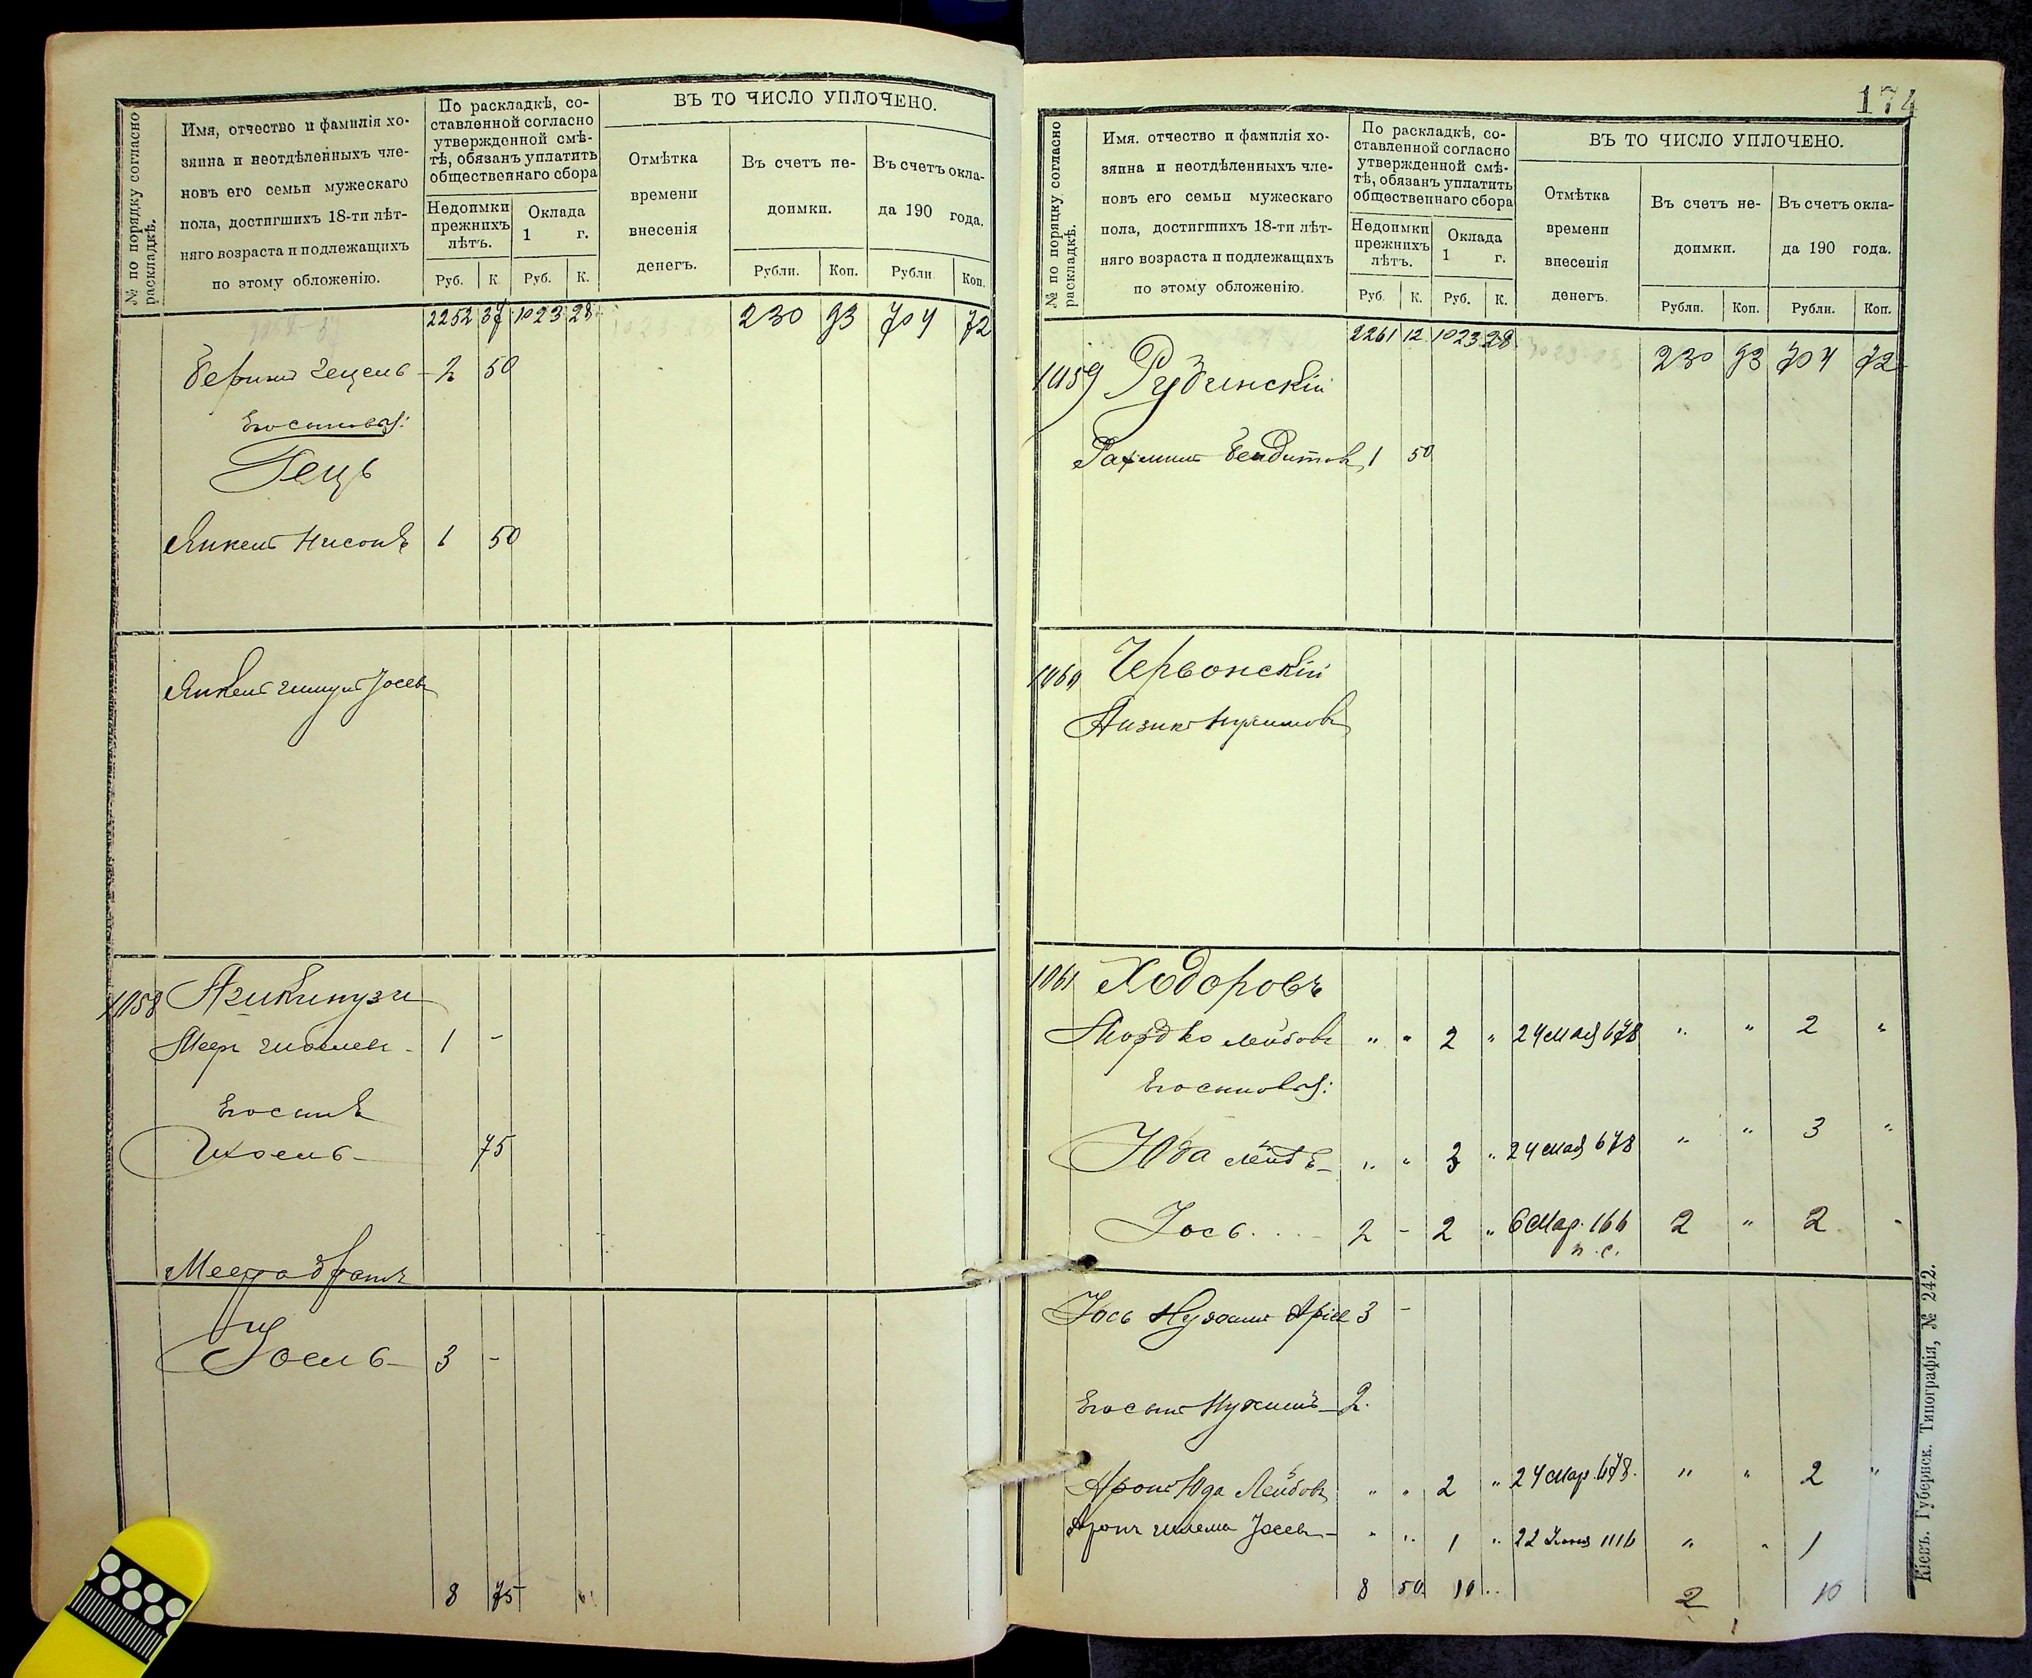 № по порядку согласно раскладкѣ.
Имя, отчество и фамилія хо-
зяина и неотдѣленныхъ чле-
новъ его семьи мужескаго
пола, достигшихъ 18-ти лѣт-
няго возраста и подлежащихъ
по этому обложенію.
По раскладкѣ, со-
ставленной согласно
утвержденной смѣ-
тѣ, обязанъ уплатить
общественнаго сбора
Недоимки прежнихъ лѣтъ.
Оклада 1 г.
Руб. К. Руб. К.
ВЪ ТО ЧИСЛО УПЛОЧЕНО.
Отмѣтка времени внесенія денегъ.
Въ счетъ не-
доимки.
Въ счетъ окла-
да 190 года.
Рубли. Коп. Рубли. Коп.
2252 37 1023 28 230 93 704 72
2 50
Его сыновья:
Герцъ
Янкель 1 50
Янкель
1058
Меер 1 -
Его сынъ
75
Меера братъ
Іосель 3 -
8 75
174
№ по порядку согласно раскладкѣ.
Имя, отчество и фамилія хо-
зяина и неотдѣленныхъ чле-
новъ его семьи мужескаго
пола, достигшихъ 18-ти лѣт-
няго возраста и подлежащихъ
по этому обложенію.
По раскладкѣ, со-
ставленной согласно
утвержденной смѣ-
тѣ, обязанъ уплатить
общественнаго сбора
Недоимки прежнихъ лѣтъ.
Оклада 1 г.
Руб. К. Руб. К.
ВЪ ТО ЧИСЛО УПЛОЧЕНО.
Отмѣтка времени внесенія денегъ.
Въ счетъ не-
доимки.
Въ счетъ окла-
да 190 года.
Рубли. Коп. Рубли. Коп.
2261 12 1023 28 230 93 704 72
1059 Рудинскій
1 50
1060 Червонскій
Айзикъ
1061 Ходоровъ
Мордко Лейбовъ " " 2 " 24 мая 678 " " 2 "
Его сыновья:
Юда Лейбъ " " 3 " 24 мая 678 " " 3 "
Іось 2 - 2 " 6 Мар. 166 2 " 2 -
н. с.
Іось 3 -
Его сынъ 2.
Аронъ Юда Лейбовъ " " 2 " 24 Мар. 678. " " 2 "
Аронъ " " 1 " 22 Іюня 1116 " " 1
8 50 10 " 2 10
Кіевъ. Губернск. Типографія, № 242.